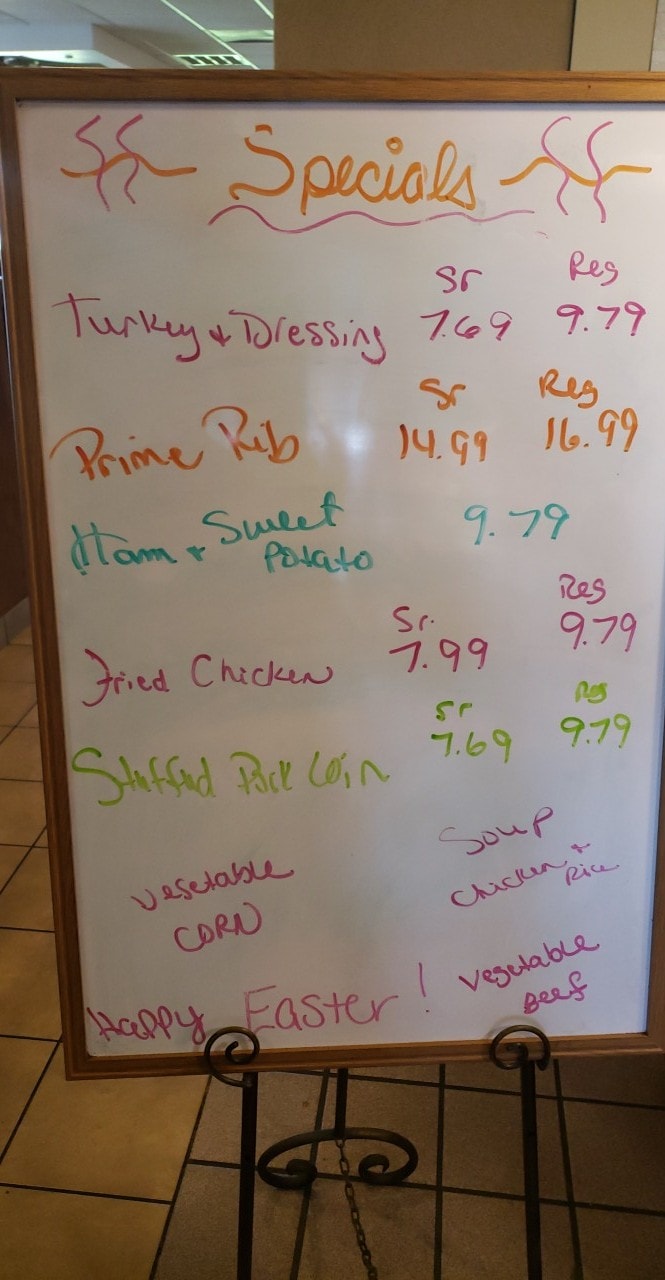 Specials
Sr Reg
Turkey & Dressing 7.69 9.79
Sr Reg
Prime Rib 14.99 16.99
Ham & Sweet Potato 9.79
Sr. Reg
Fried Chicken 7.99 9.79
Sr Reg
Stuffed Pork Loin 7.69 9.79
Vegetable
CORN
Soup
Chicken & Rice
Vegetable
Beef
Happy Easter!